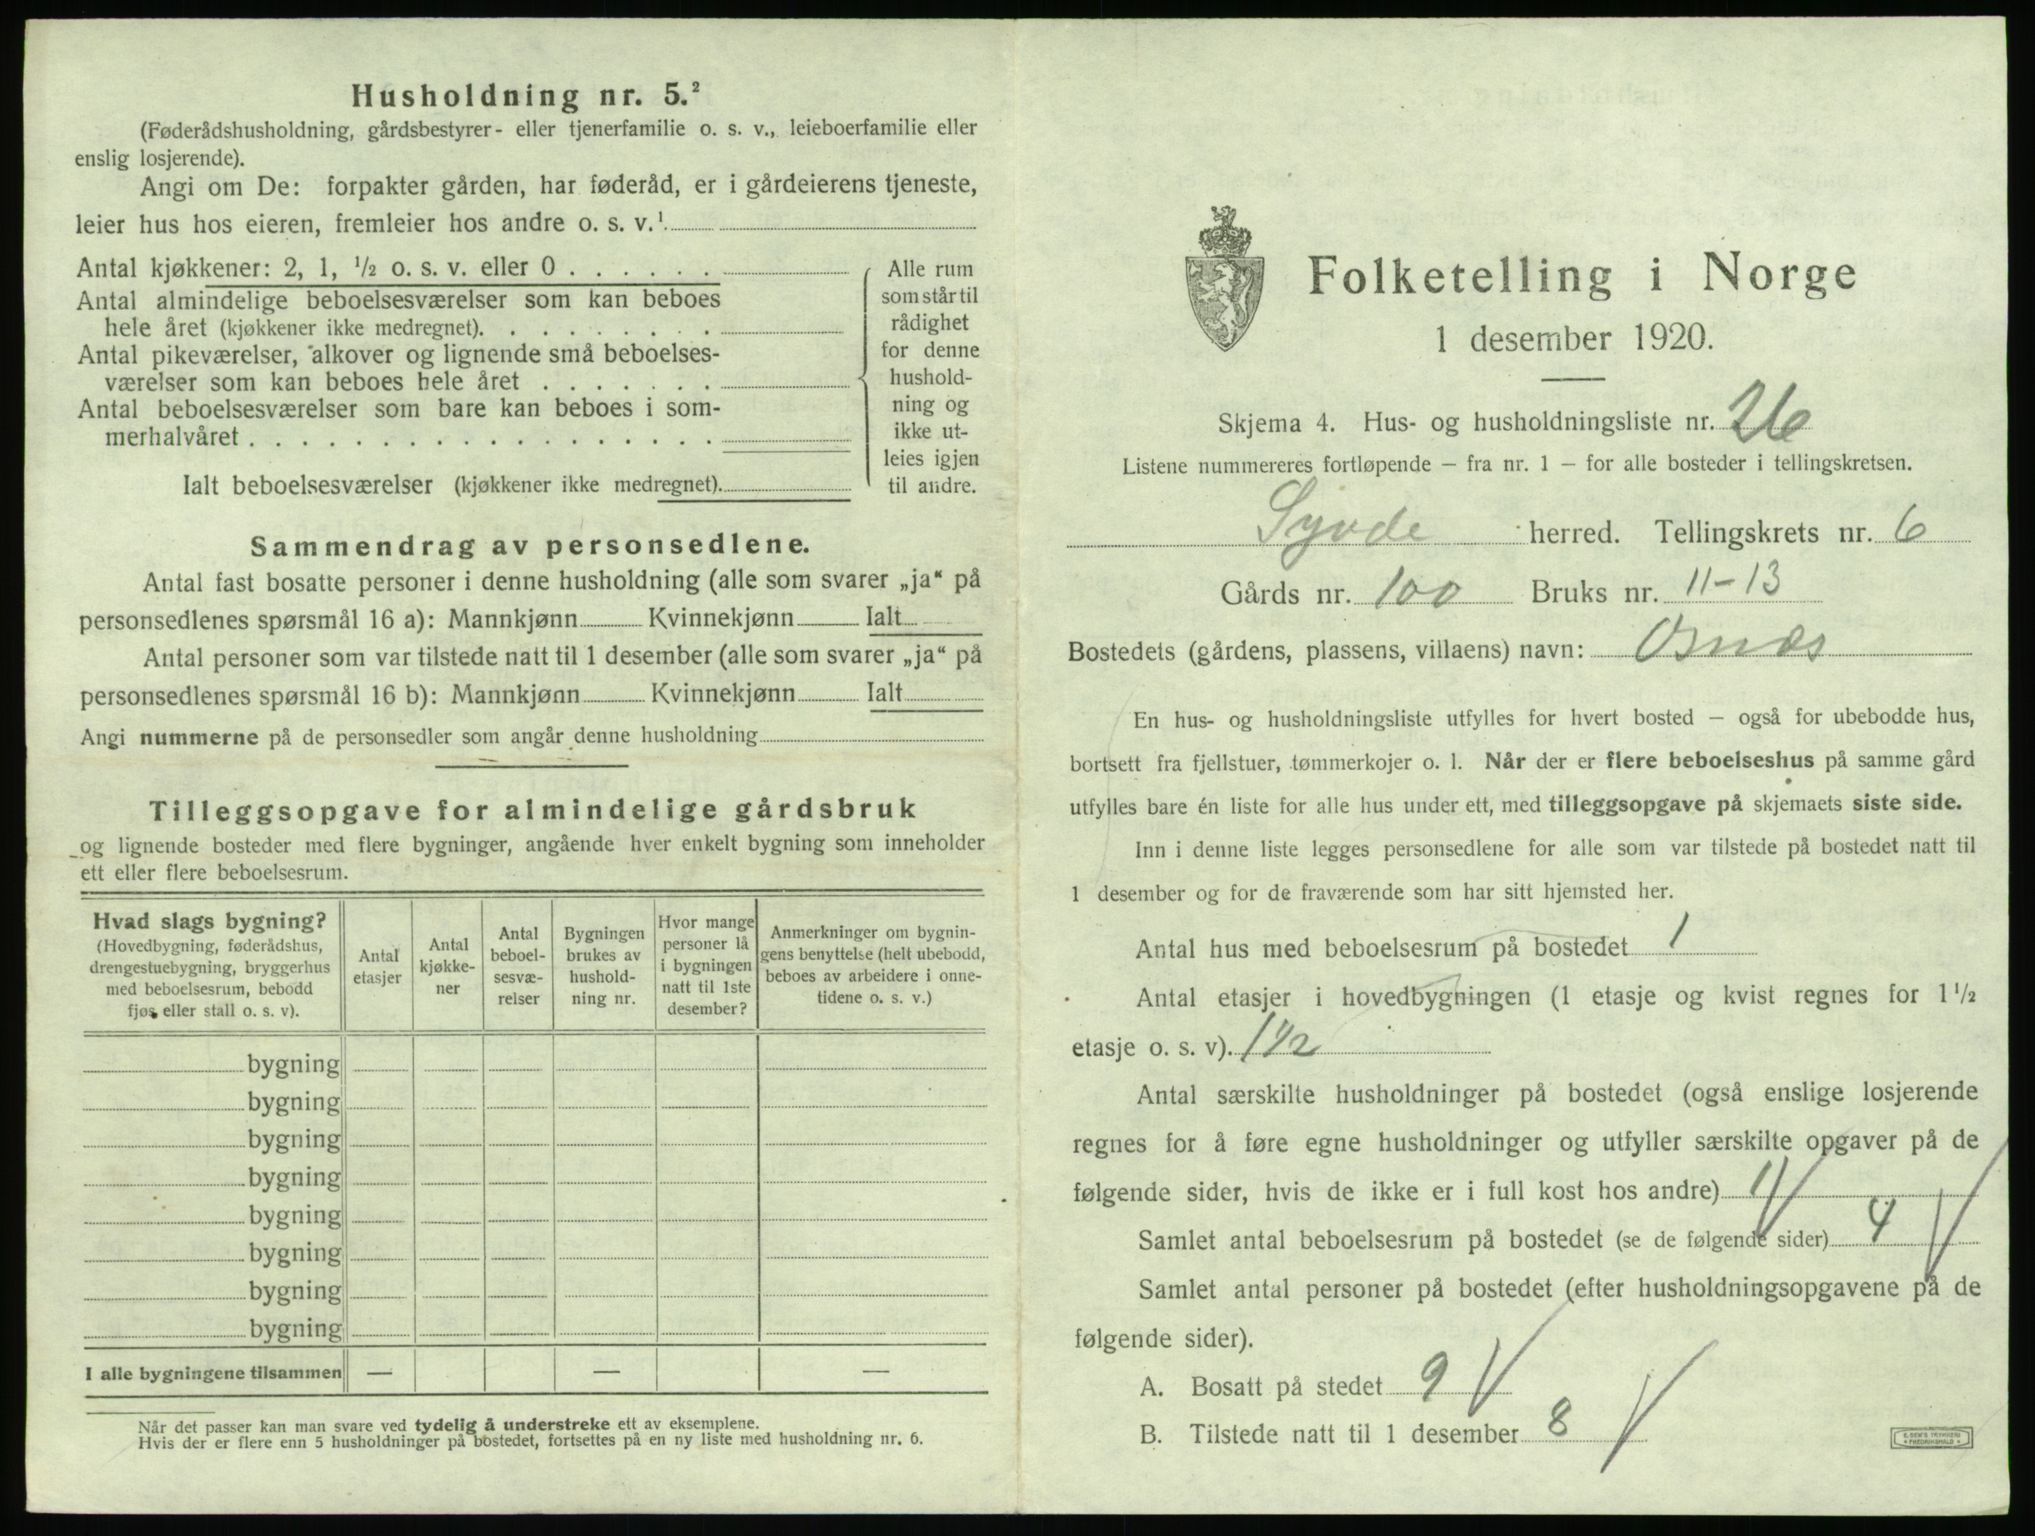 Husholdning nr. 5.²
(Føderådshusholdning, gårdsbestyrer- eller tjenerfamilie o. s. v., leieboerfamilie eller
enslig losjerende).
Angi om De: forpakter gården, har føderåd, er i gårdeierens tjeneste,
leier hus hos eieren, fremleier hos andre o. s. v.¹
Antal kjøkkener: 2, 1, ½ o. s. v. eller 0
Antal almindelige beboelsesværelser som kan beboes
hele året (kjøkkener ikke medregnet).
Antal pikeværelser, alkover og lignende små beboelses-
værelser som kan beboes hele året
Antal beboelsesværelser som bare kan beboes i som-
merhalvåret
Ialt beboelsesværelser (kjøkkener ikke medregnet)
Alle rum
som står til
rådighet
for denne
hushold-
ning og
ikke ut-
leies igjen
til andre.
Sammendrag av personsedlene.
Antal fast bosatte personer i denne husholdning (alle som svarer „ja“ på
personsedlenes spørsmål 16 a): Mannkjønn Kvinnekjønn Ialt
Antal personer som var tilstede natt til 1 desember (alle som svarer „ja“ på
personsedlenes spørsmål 16 b): Mannkjønn Kvinnekjønn Ialt
Angi nummerne på de personsedler som angår denne husholdning
Tilleggsopgave for almindelige gårdsbruk
og lignende bosteder med flere bygninger, angående hver enkelt bygning som inneholder
ett eller flere beboelsesrum.
Hvad slags bygning?
(Hovedbygning, føderådshus,
drengestuebygning, bryggerhus
med beboelsesrum, bebodd
fjøs eller stall o. s. v).
Antal
etasjer
Antal
kjøkke-
ner
Antal
beboel-
sesvæ-
relser
Bygningen
brukes av
hushold-
ning nr.
Hvor mange
personer lå
i bygningen
natt til 1ste
desember?
Anmerkninger om bygnin-
gens benyttelse (helt ubebodd,
beboes av arbeidere i onne-
tidene o. s. v.)
bygning
bygning
bygning
bygning
bygning
bygning
bygning
bygning
I alle bygningene tilsammen — — —
Når det passer kan man svare ved tydelig å understreke ett av eksemplene.
Hvis der er flere enn 5 husholdninger på bostedet, fortsettes på en ny liste med husholdning nr. 6.
Folketelling i Norge
1 desember 1920.
Skjema 4. Hus- og husholdningsliste nr. 26
Listene nummereres fortløpende – fra nr. 1 – for alle bosteder i tellingskretsen.
Syvde herred. Tellingskrets nr. 6
Gårds nr. 100 Bruks nr. 11-13
Bostedets (gårdens, plassens, villaens) navn: Osnes
En hus- og husholdningsliste utfylles for hvert bosted – også for ubebodde hus,
bortsett fra fjellstuer, tømmerkojer o. l. Når der er flere beboelseshus på samme gård
utfylles bare én liste for alle hus under ett, med tilleggsopgave på skjemaets siste side.
Inn i denne liste legges personsedlene for alle som var tilstede på bostedet natt til
1 desember og for de fraværende som har sitt hjemsted her.
Antal hus med beboelsesrum på bostedet 1
Antal etasjer i hovedbygningen (1 etasje og kvist regnes for 1½
etasje o. s. v). 1½
Antal særskilte husholdninger på bostedet (også enslige losjerende
regnes for å føre egne husholdninger og utfyller særskilte opgaver på de
følgende sider, hvis de ikke er i full kost hos andre) 1
Samlet antal beboelsesrum på bostedet (se de følgende sider) 4
Samlet antal personer på bostedet (efter husholdningsopgavene på de
følgende sider).
A. Bosatt på stedet 9
B. Tilstede natt til 1 desember 8